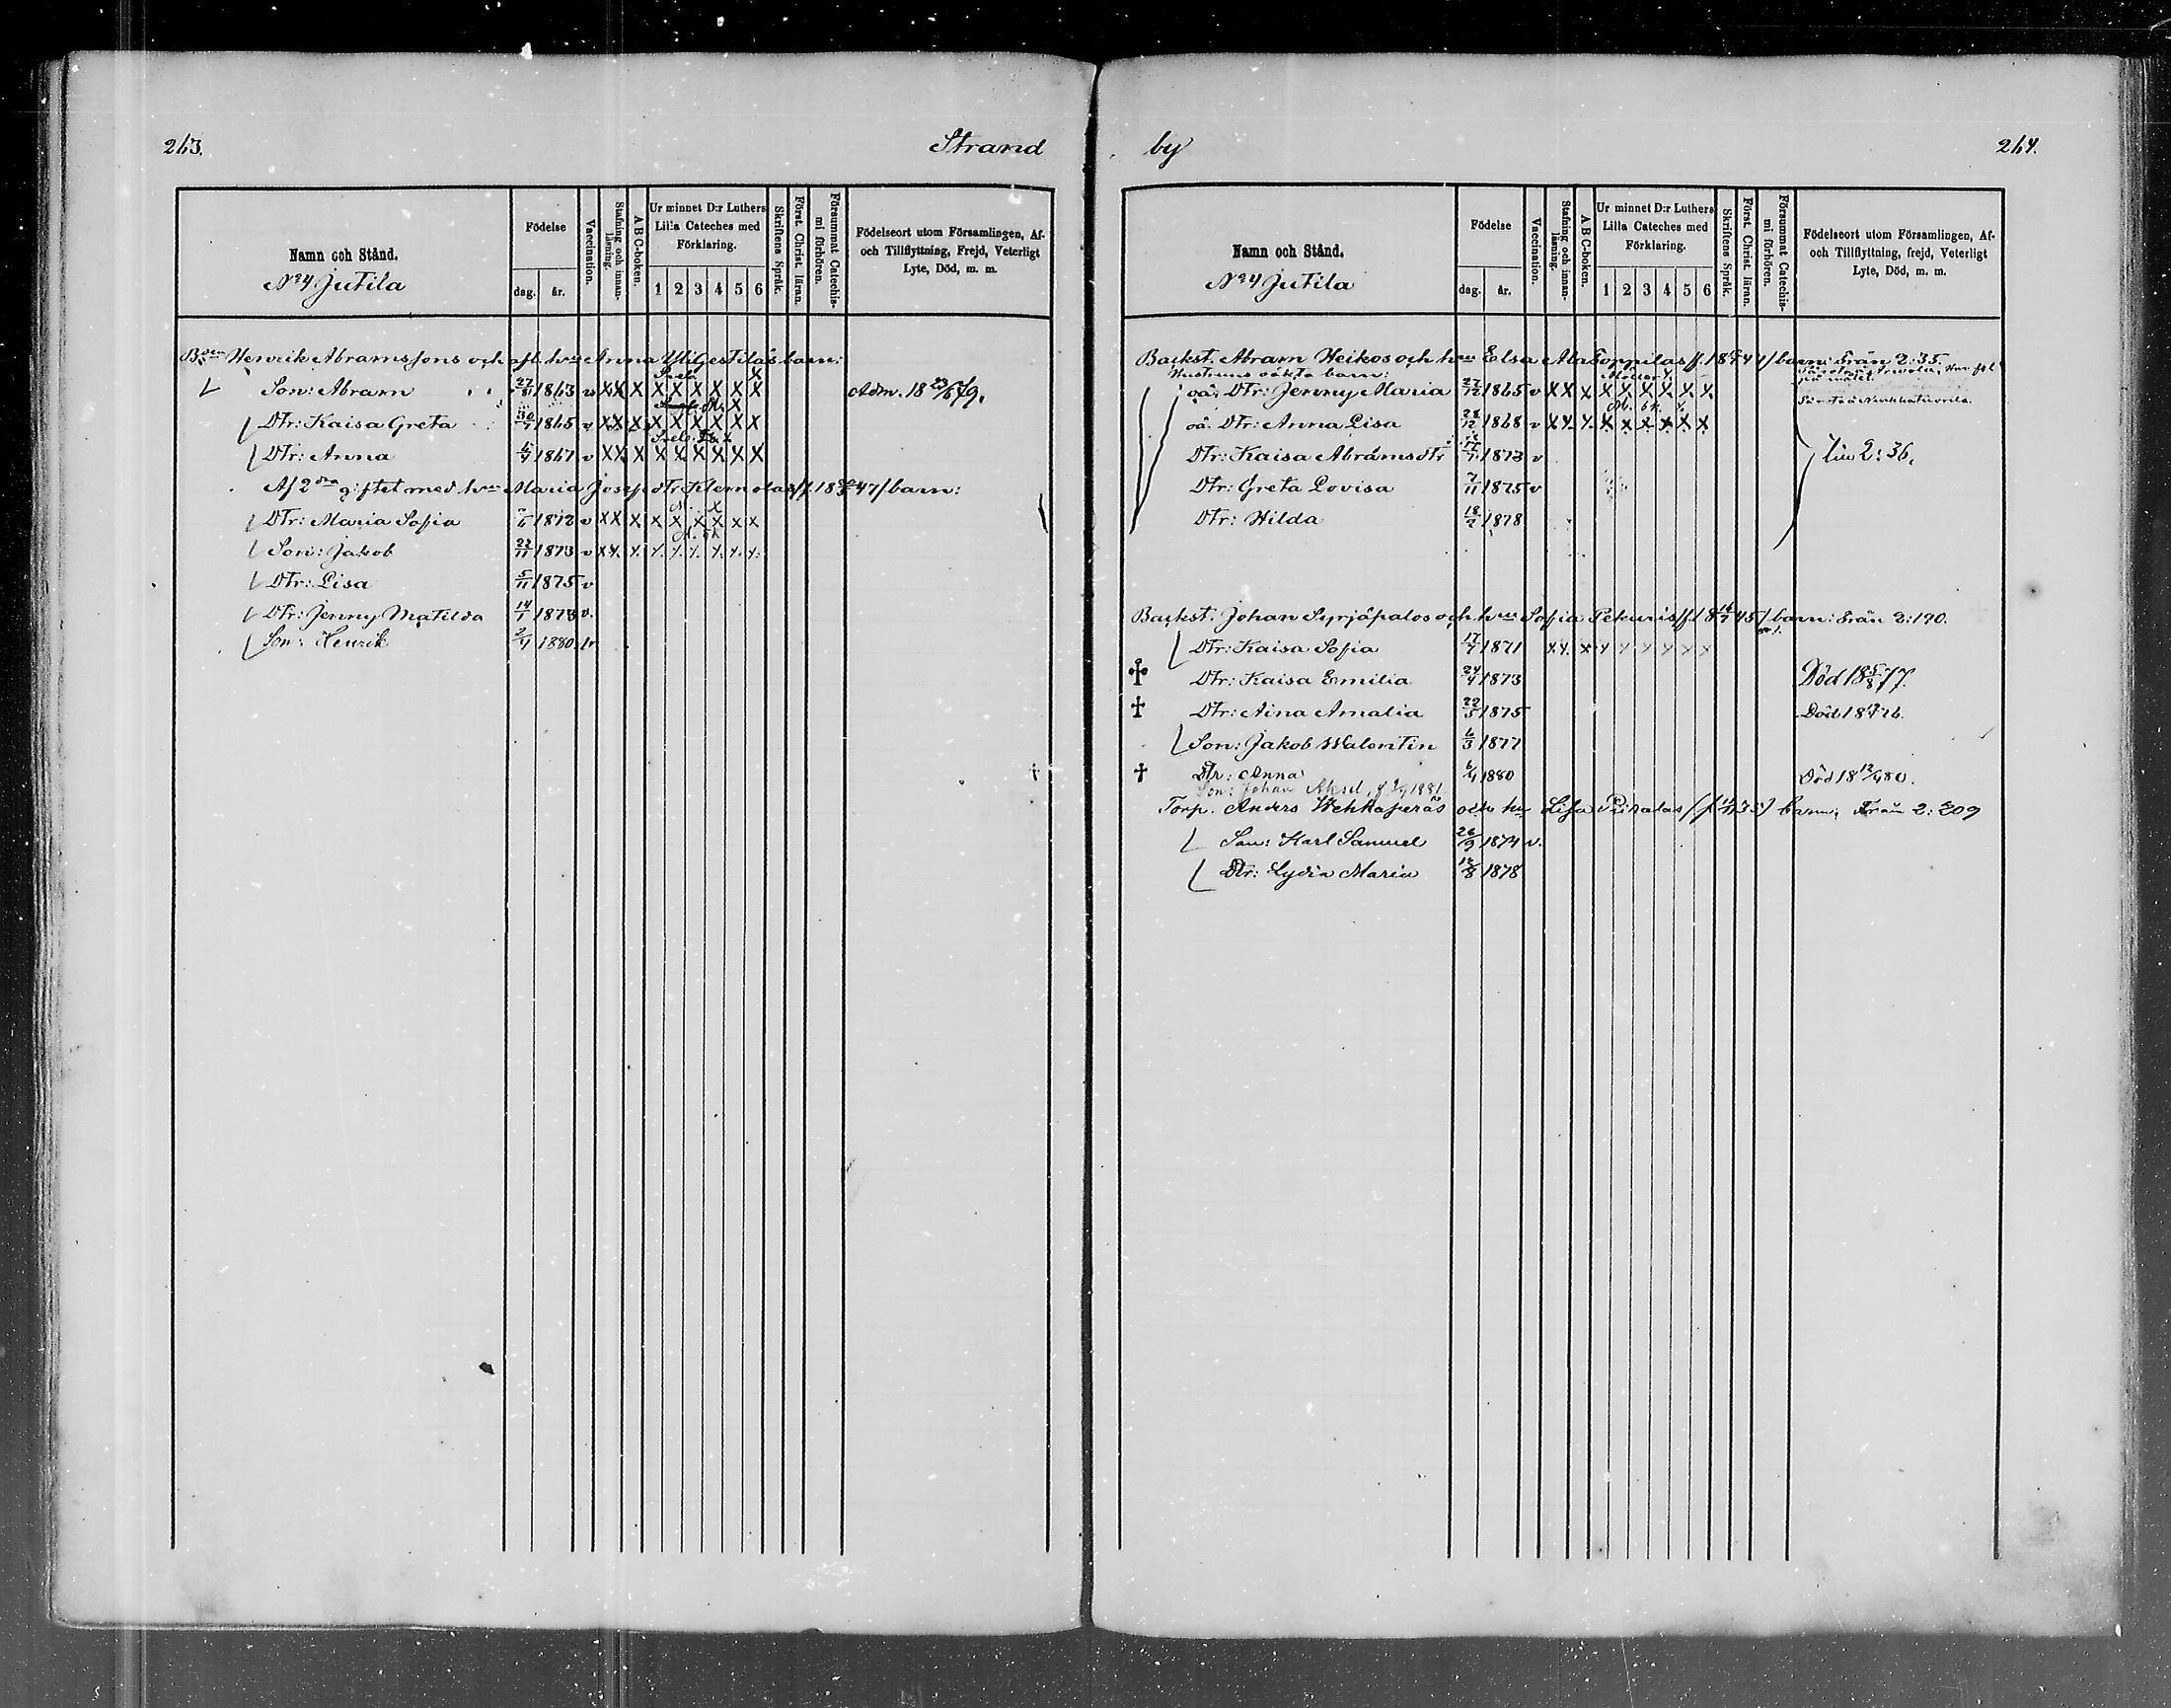 263.
Strand
Namn och Stånd.
Nº 4 Jutila
Födelse
dag.
år.
Vaccination.
Stafning och innan-
läsning.
A B C-boken.
Ur minnet D:r Luthers
Lilla Cateches med
Förklaring.
1 2 3 4 5 6
Skriftens Språk.
Först. Christ. läran.
Försummat Catechis-
mi förhören.
Födelseort utom Församlingen, Af-
och Tillflyttning, Frejd, Veterligt
Lyte, Död, m. m.
Henrik Abramssons och afl. hus Anna Yligestilas barn:
Son: Abram 27/8 1863 v X X X X X X X X X Adm. 18 23/8 79.
Dtr: Kaisa Greta 1865 v X X X X X X X X X
Dtr: Anna 1867 v X X X X X X X X X
Af 2dra giftet med hu Maria Josepdtr barn:
Dtr: Maria Sofia 1872 v X X X X X X X X X
Son: Jakob 22/11 1873 v X X X X X X X X X
Dtr: Lisa 5/11 1875 v
Dtr: Jenny Matilda 14/1 1878 v.
Son: Henrik 2/4 1880
by
264.
Namn och Stånd.
Nº 4 Jutila
Födelse
dag.
år.
Vaccination.
Stafning och innan-
läsning.
A B C-boken.
Ur minnet D:r Luthers
Lilla Cateches med
Förklaring.
1 2 3 4 5 6
Skriftens Språk.
Först. Christ. läran.
Försummat Catechis-
mi förhören.
Födelseort utom Församlingen, Af-
och Tillflyttning, frejd, Veterligt
Lyte, Död, m. m.
Backst. Abram Heikos och hus Elsa barn: Från 2:35.
Hustruns oäkta barn:
oä. Dtr: Jenny Maria 27/12 1865 v X X X X X X X X X
oä. Dtr: Anna Lisa 28/12 1868 v X X X X X X X X X
Dtr: Kaisa Abramsdtr 1873 v 2:36.
Dtr: Greta Lovisa 7/11 1875 v
Dtr: Hilda 18/2 1878
Backst. Johan Syrjäpalos och hus Sofia Pekuris barn: Från 2:190.
Dtr: Kaisa Sofia 17/7 1871 X X X X X X X X X
Dtr: Kaisa Emilia 24/4 1873 Död 18 5/8 77.
Dtr: Aina Amalia 22/5 1875
Son: Jakob Walentin 6/3 1877
Dtr: Anna 6/4 1880
Son: Johan Aksel, 1881
Torp. Anders Wehkaperäs och hu Lisa barn, Från 2:209
Son: Karl Samuel 26/9 1874 v.
Dtr: Lydia Maria 1878